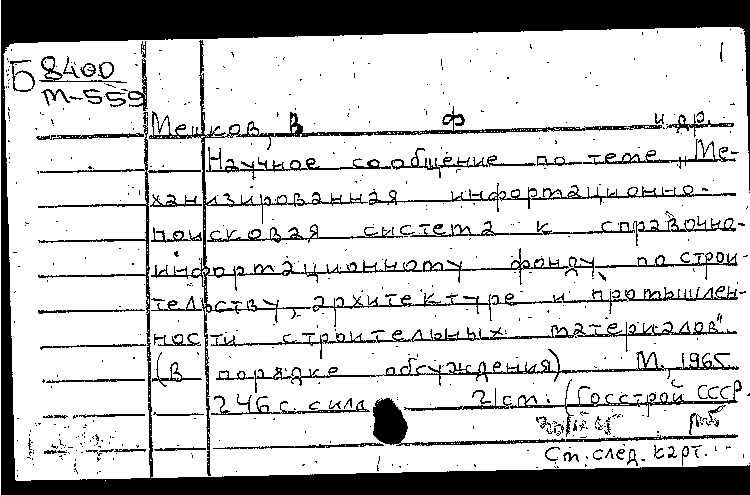 Б 8400
М-559
Мешков, В Ф и др.
Научное сообщение по теме „Ме-
ханизированная информационно-
поисковая система к справочно-
информационному фонду по строи-
тельству, архитектуре и промышлен-
ности строительных материалов"
(В порядке обсуждения) М., 1965
246 с. сила
2/ст: (Госстрой СССР.
См. след. карт.